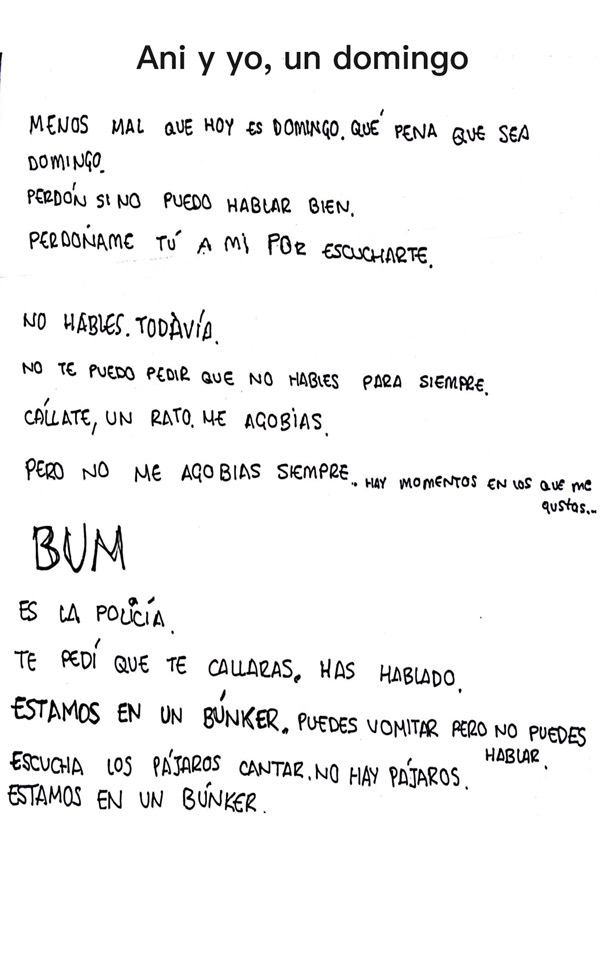 Ani y yo, un domingo
MENOS MAL QUE HOY ES DOMINGO. QUÉ PENA QUE SEA
DOMINGO.
PERDÓN SI NO PUEDO HABLAR BIEN.
PERDÓÑAME TÚ A MÍ POR ESCUCHARTE.
NO HABLES. TODAVÍA.
NO TE PUEDO PEDIR QUE NO HABLES PARA SIEMPRE.
CÁLLATE, UN RATO. ME AGOBIAS.
PERO NO ME AGOBIAS SIEMPRE.. HAY MOMENTOS EN LOS QUE me
gustas...
BUM
ES LA POLICÍA.
TE PEDÍ QUE TE CALLARAS. HAS HABLADO.
ESTAMOS EN UN BÚNKER. PUEDES VOMITAR PERO NO PUEDES
HABLAR.
ESCUCHA LOS PÁJAROS CANTAR. NO HAY PÁJAROS.
ESTAMOS EN UN BÚNKER.